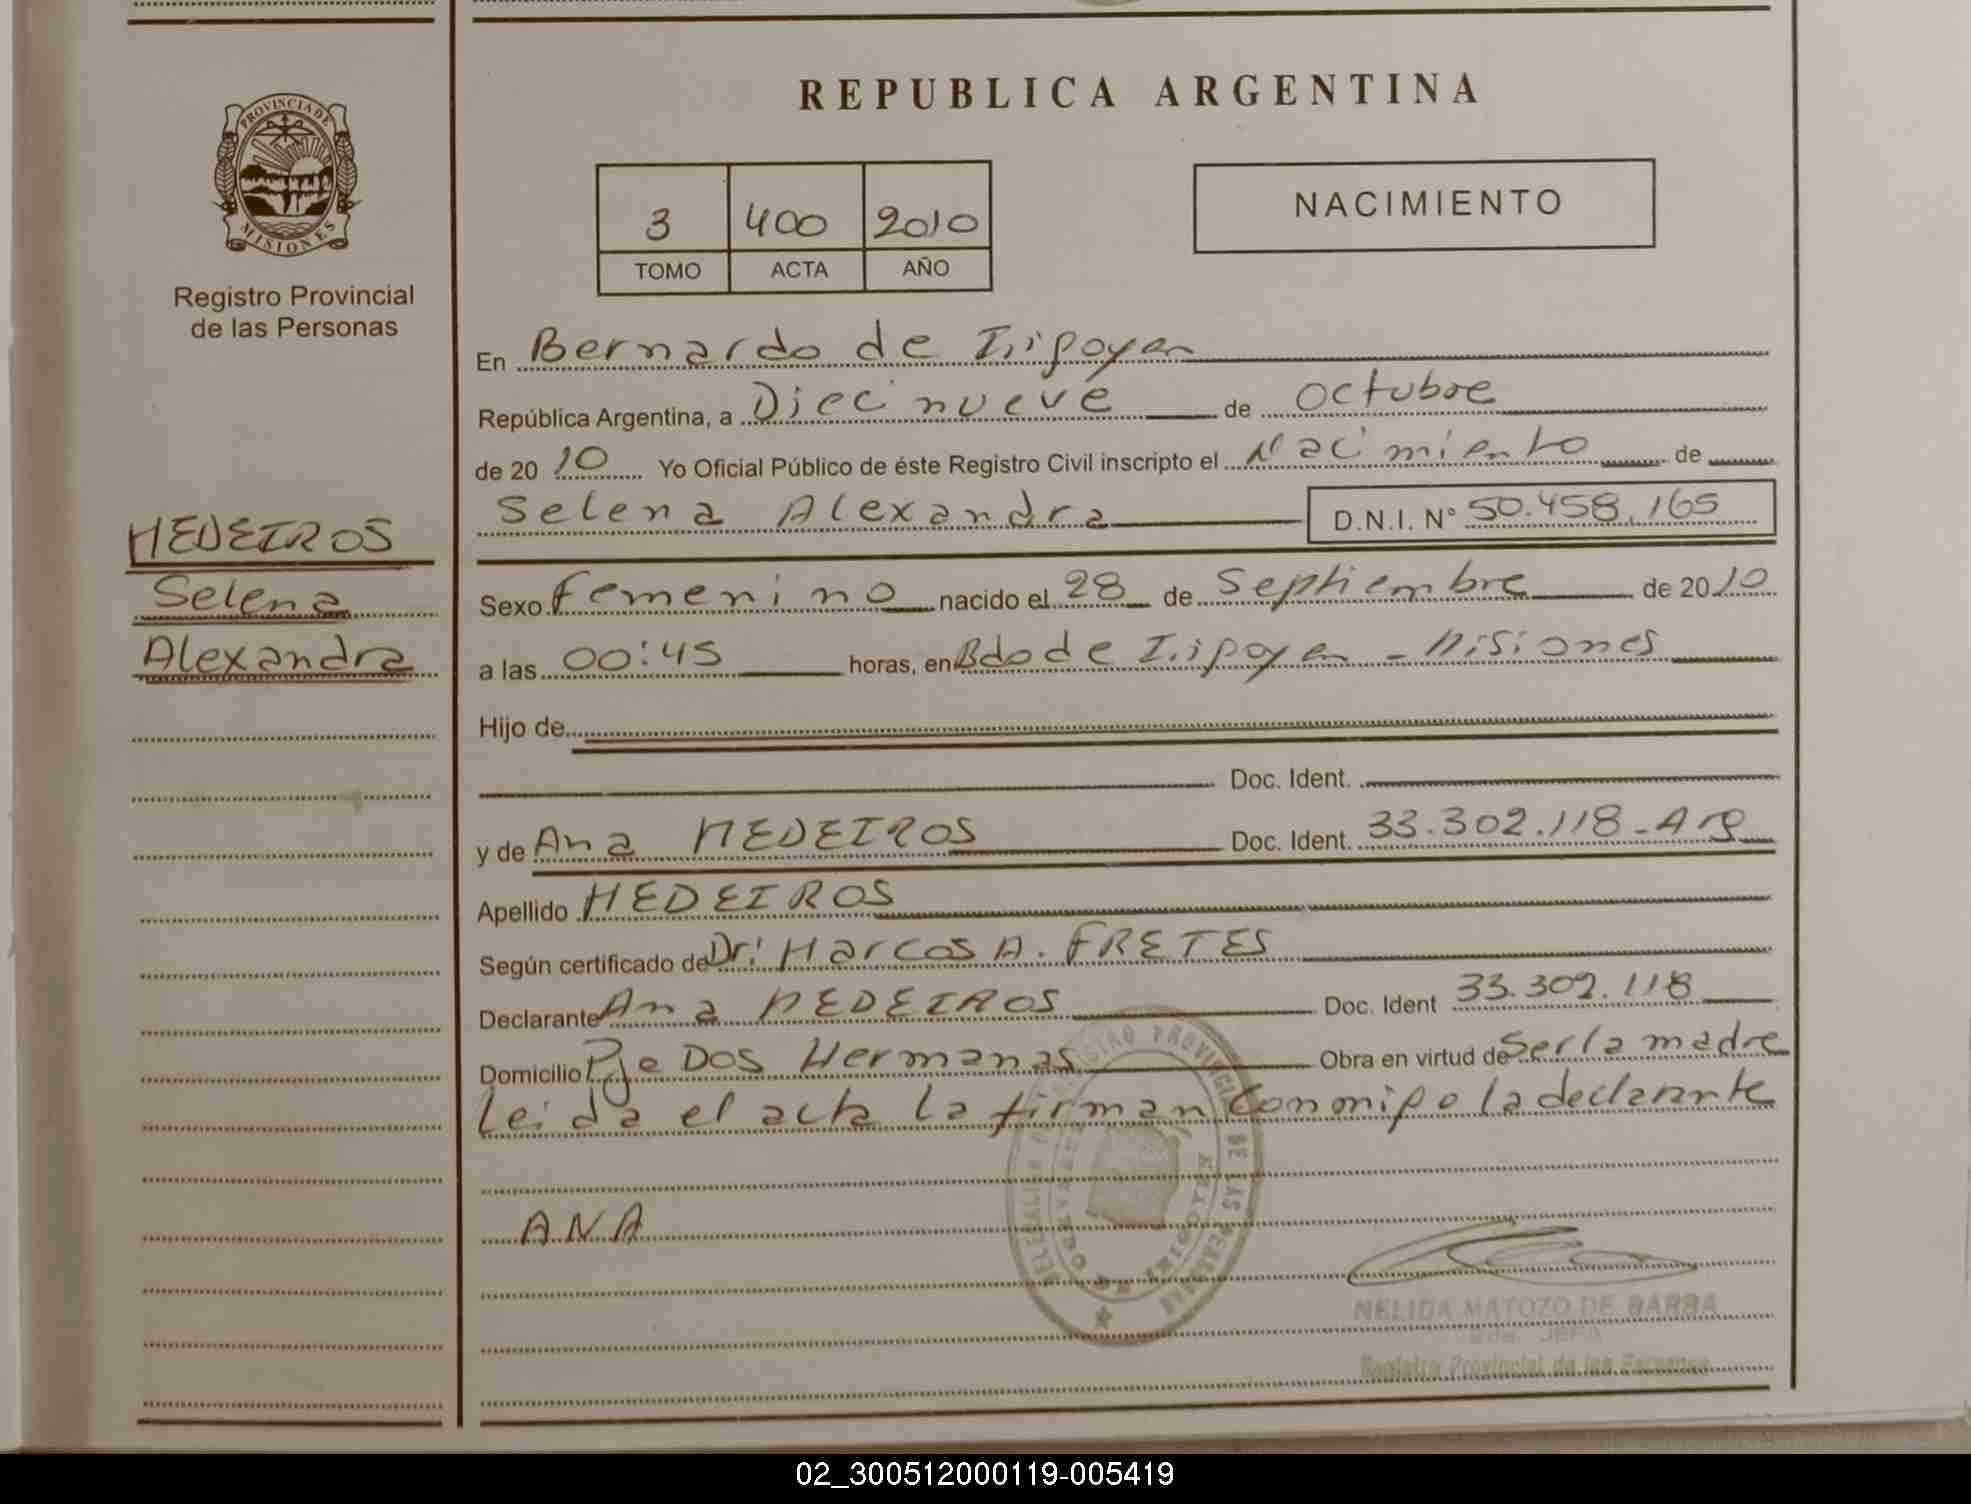 REPUBLICA ARGENTINA
PROVINCIA DE MISIONES
Registro Provincial
de las Personas
3 400 2010
TOMO ACTA AÑO
NACIMIENTO
En Bernardo de Irigoyen
República Argentina, a Diecinueve de octubre
de 2010 Yo Oficial Público de éste Registro Civil inscripto el Nacimiento de
Selena Alexandra D.N.I. N° 50.458.165
MEDEIROS
Selena
Alexandra
Sexo Femenino nacido el 28 de Septiembre de 2010
a las 00:45 horas, en Bdo de Irigoyen - Misiones
Hijo de
Doc. Ident.
y de Ana MEDEIROS Doc. Ident. 33.302.118 - Arg
Apellido MEDEIROS
Según certificado de Dr: Marcos A. FRETES
Declarante Ana MEDEIROS Doc. Ident 33.302.118
Domicilio Pje Dos Hermanas Obra en virtud de Ser la madre
Leida el acta la firman Conmigo la declarante
ANA
NELIDA MATOZO DE BARRA
JEFA
Registro Provincial de las Personas
02_300512000119-005419